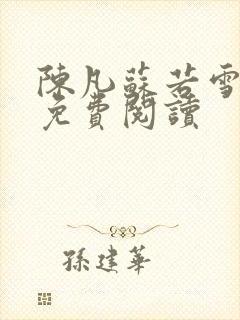 陳凡蘇若雪
免費閱讀
孫建華